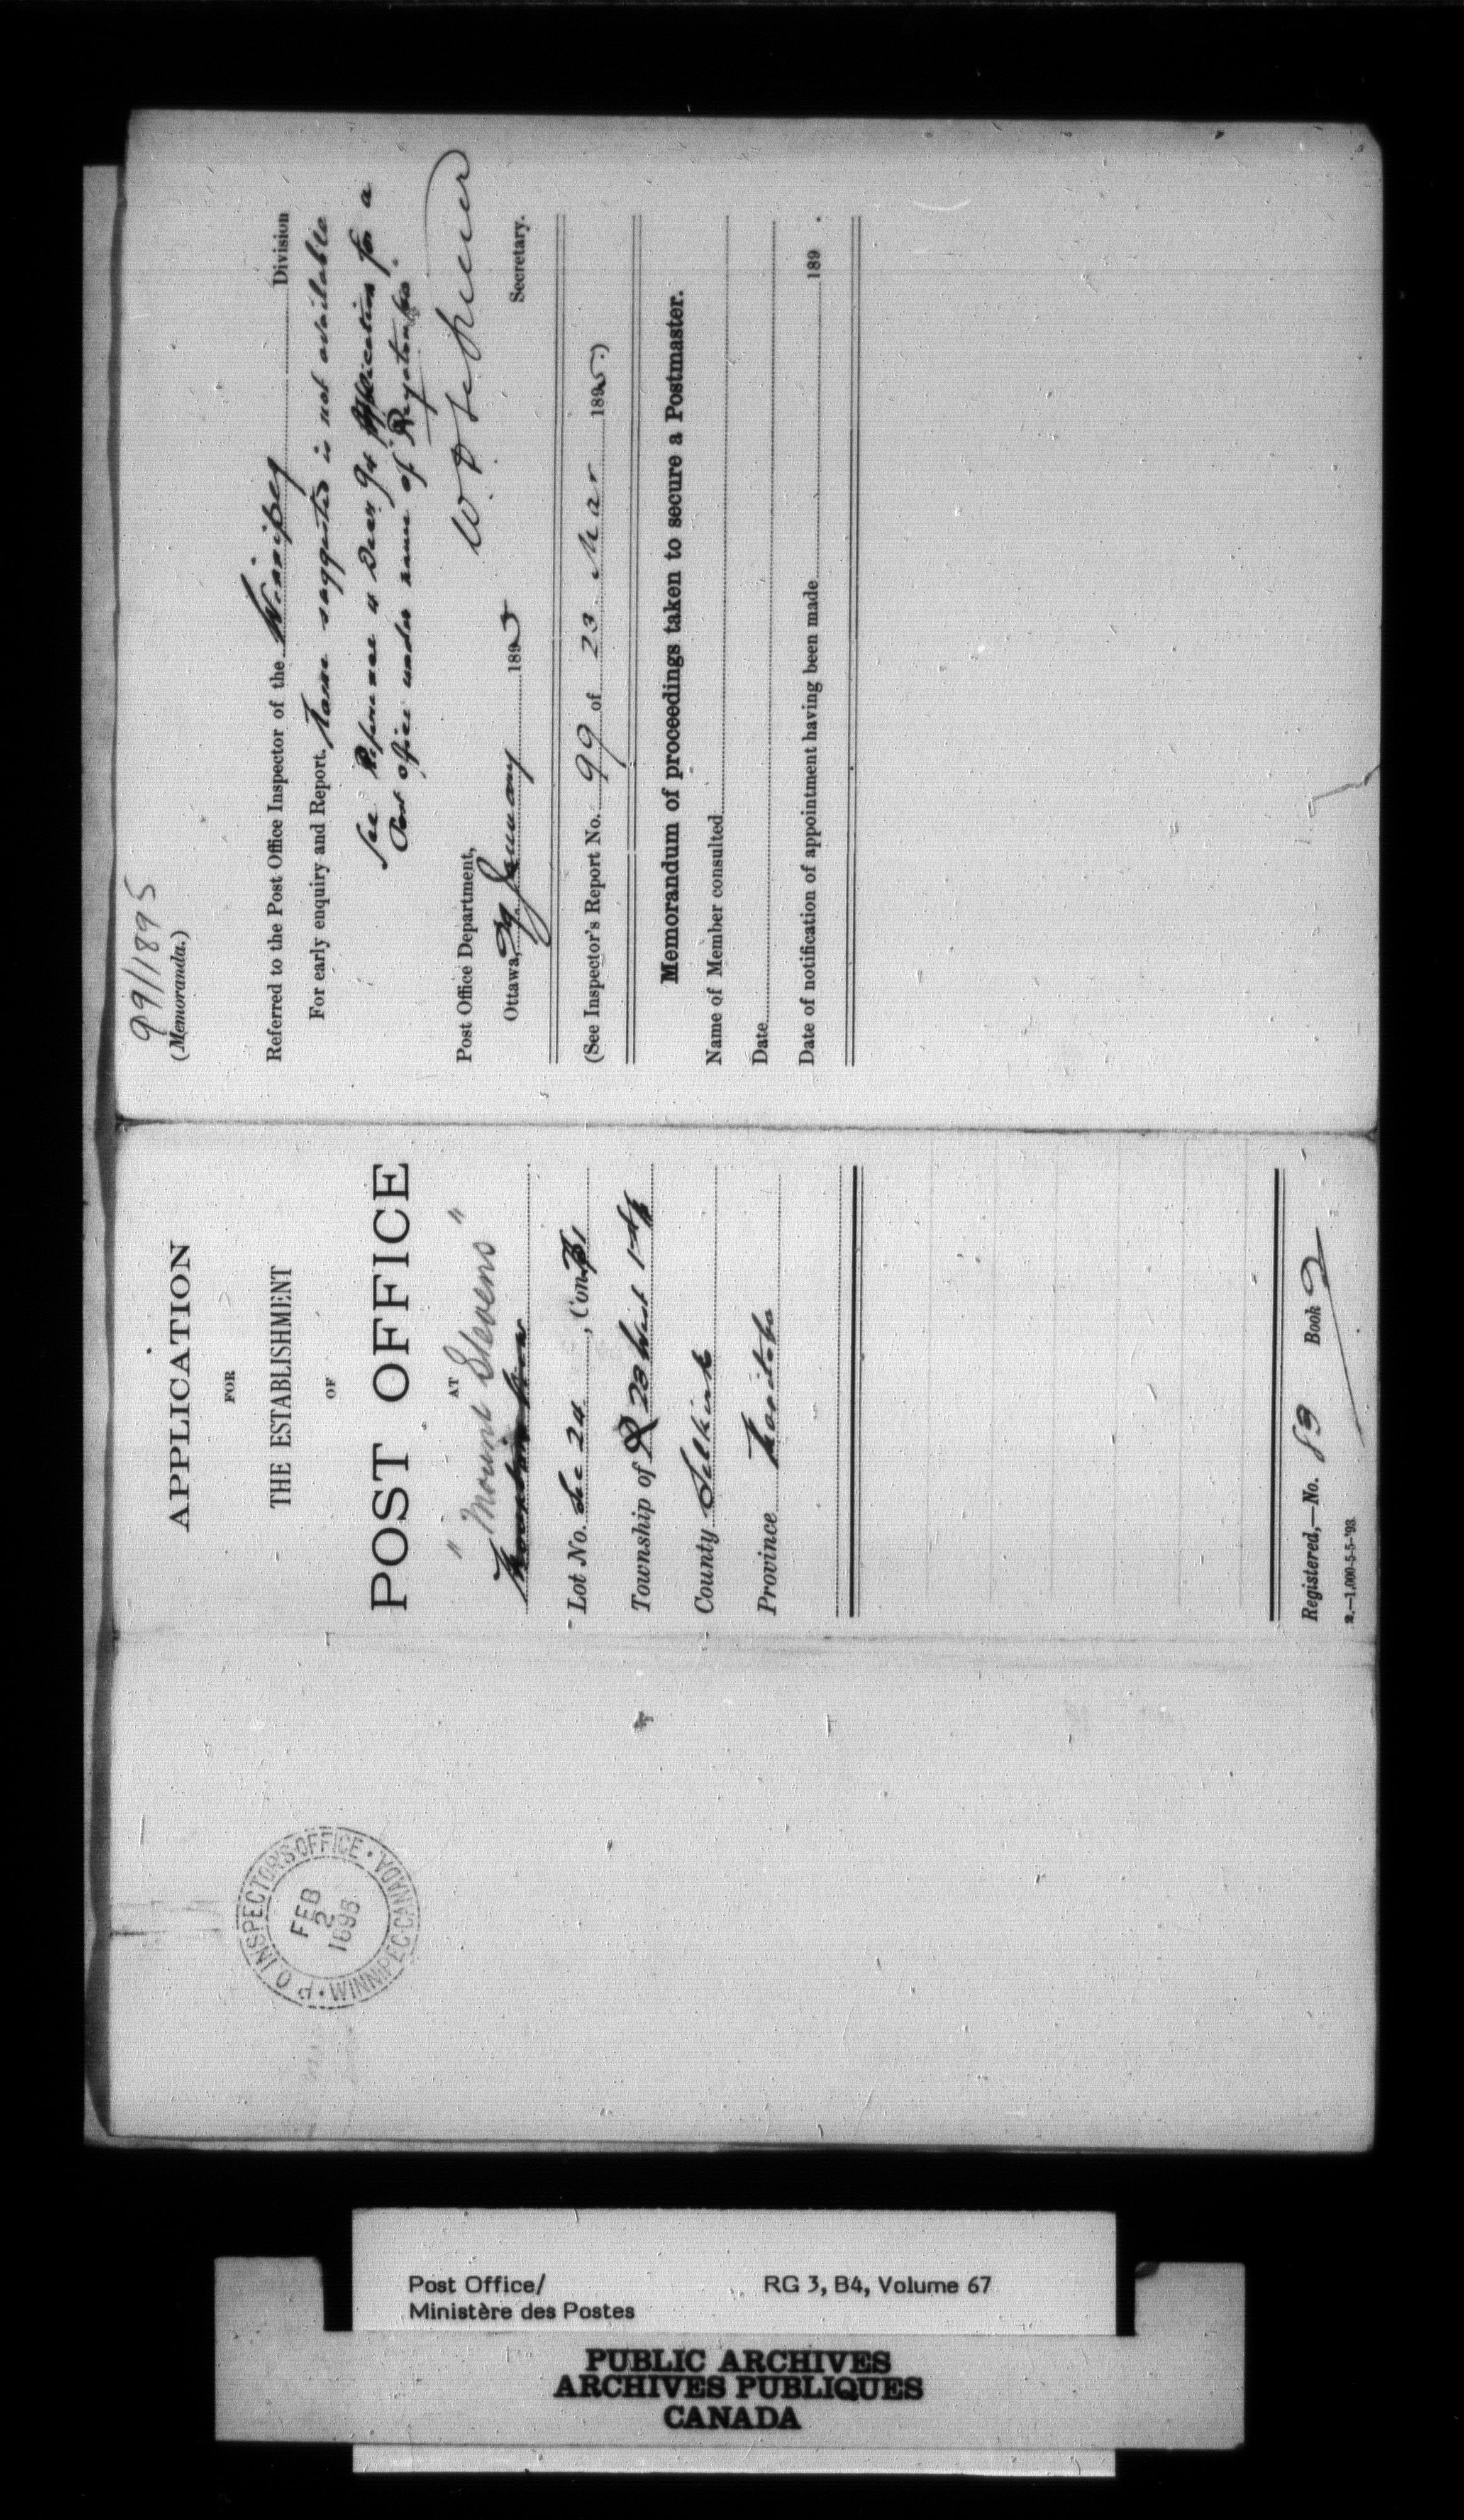 99/1895
(Memoranda.)
Referred to the Post Office Inspector of the Winnipeg Division
For early enquiry and Report. Name suggested is not available
See Reference of Decr 94 Application for a
Post office under name of
Post Office Department,
Ottawa, January 1895
W. D. LeSueur
Secretary.
(See Inspector's Report No. 99 of 23 Mar 1895.)
Memorandum of proceedings taken to secure a Postmaster.
Name of Member consulted
Date
Date of notification of appointment having been made 189 .
APPLICATION
FOR
THE ESTABLISHMENT
OF
POST OFFICE
AT
" Mount Stevens "
Lot No. Sec 24, Con.
Township of 28 West 1st
County Selkirk
Province Manitoba
Registered,—No. 83 Book 2
2.—1,000-5-5-'93.
P O INSPECTOR'S OFFICE • WINNIPEG CANADA
FEB
2
1895
Post Office/
Ministère des Postes
RG 3, B4, Volume 67
PUBLIC ARCHIVES
ARCHIVES PUBLIQUES
CANADA